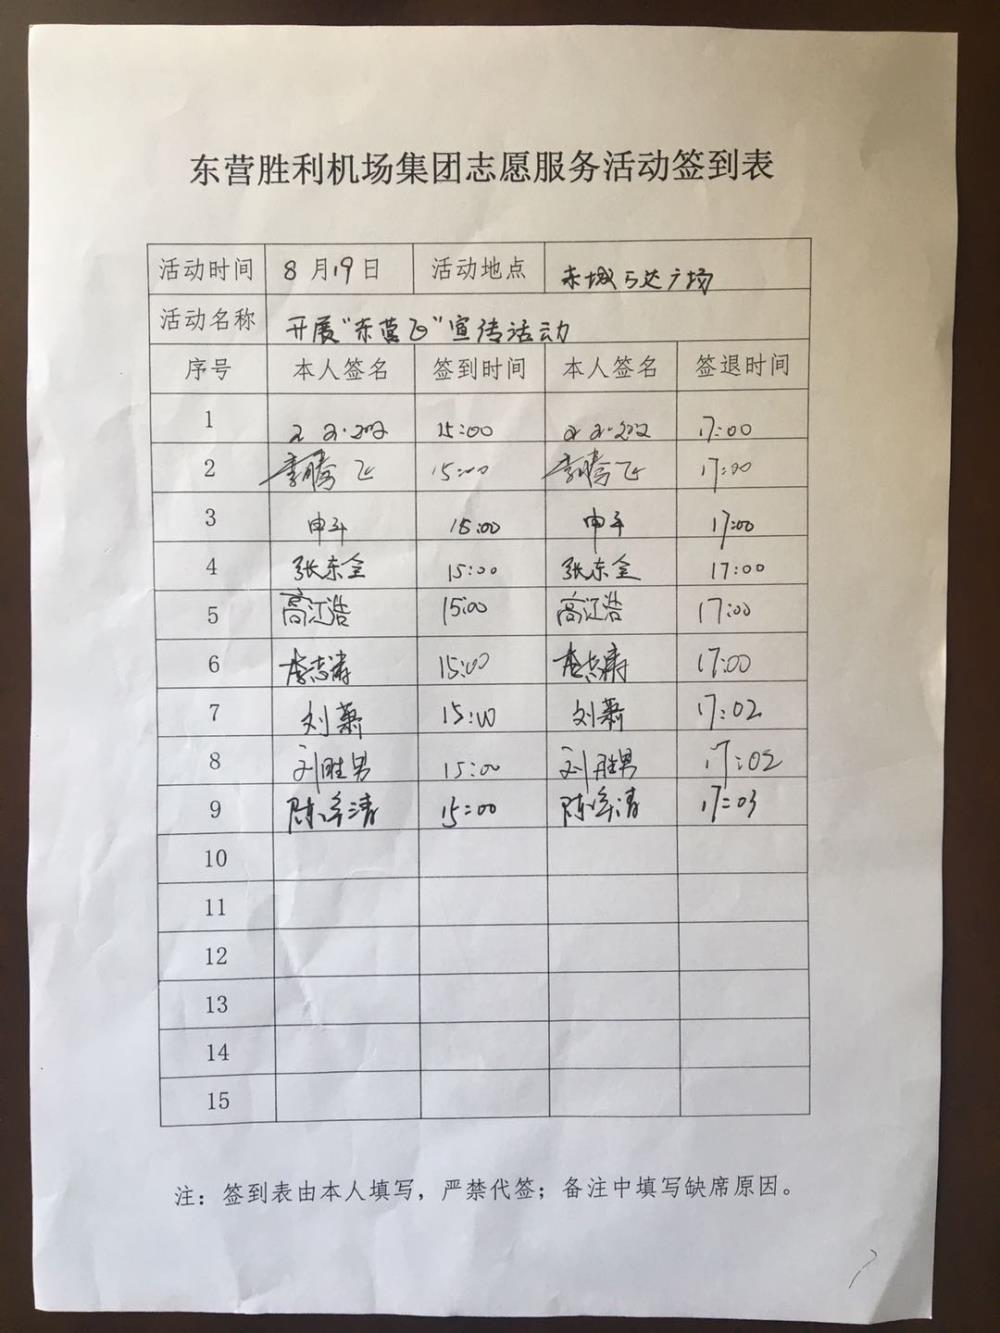 东营胜利机场集团志愿服务活动签到表
活动时间 8月19日 活动地点 东城万达广场
活动名称 开展“东营飞”宣传活动
序号 本人签名 签到时间 本人签名 签退时间
1 15:00 17:00
2 李腾飞 15:00 17:00 李腾飞
3 申斗 15:00 申斗 17:00
4 张东全 15:00 张东全 17:00
5 高江浩 15:00 高江浩 17:00
6 李志涛 15:00 李志涛 17:00
7 刘萧 15:00 刘萧 17:02
8 刘胜男 15:00 刘胜男 17:02
9 陈 清 15:00 陈 清 17:03
10
11
12
13
14
15
注：签到表由本人填写，严禁代签；备注中填写缺席原因。